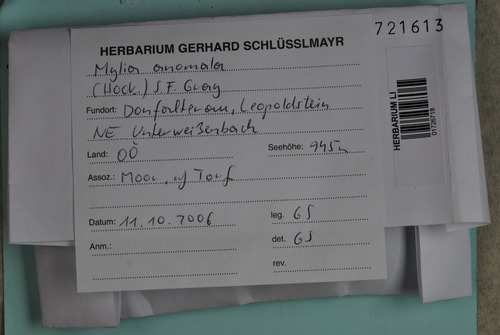 HERBARIUM GERHARD SCHLÜSSLMAYR
721613
Mylia anomala
(Hook.) S.F. Gray
Fundort: Leopoldstein
NE Unterweißenbach
Land: OÖ Seehöhe: 945m
Assoz.: Moor, auf Torf
Datum: 11.10.2006 leg. GS
Anm.: det. GS
rev.
HERBARIUM LI